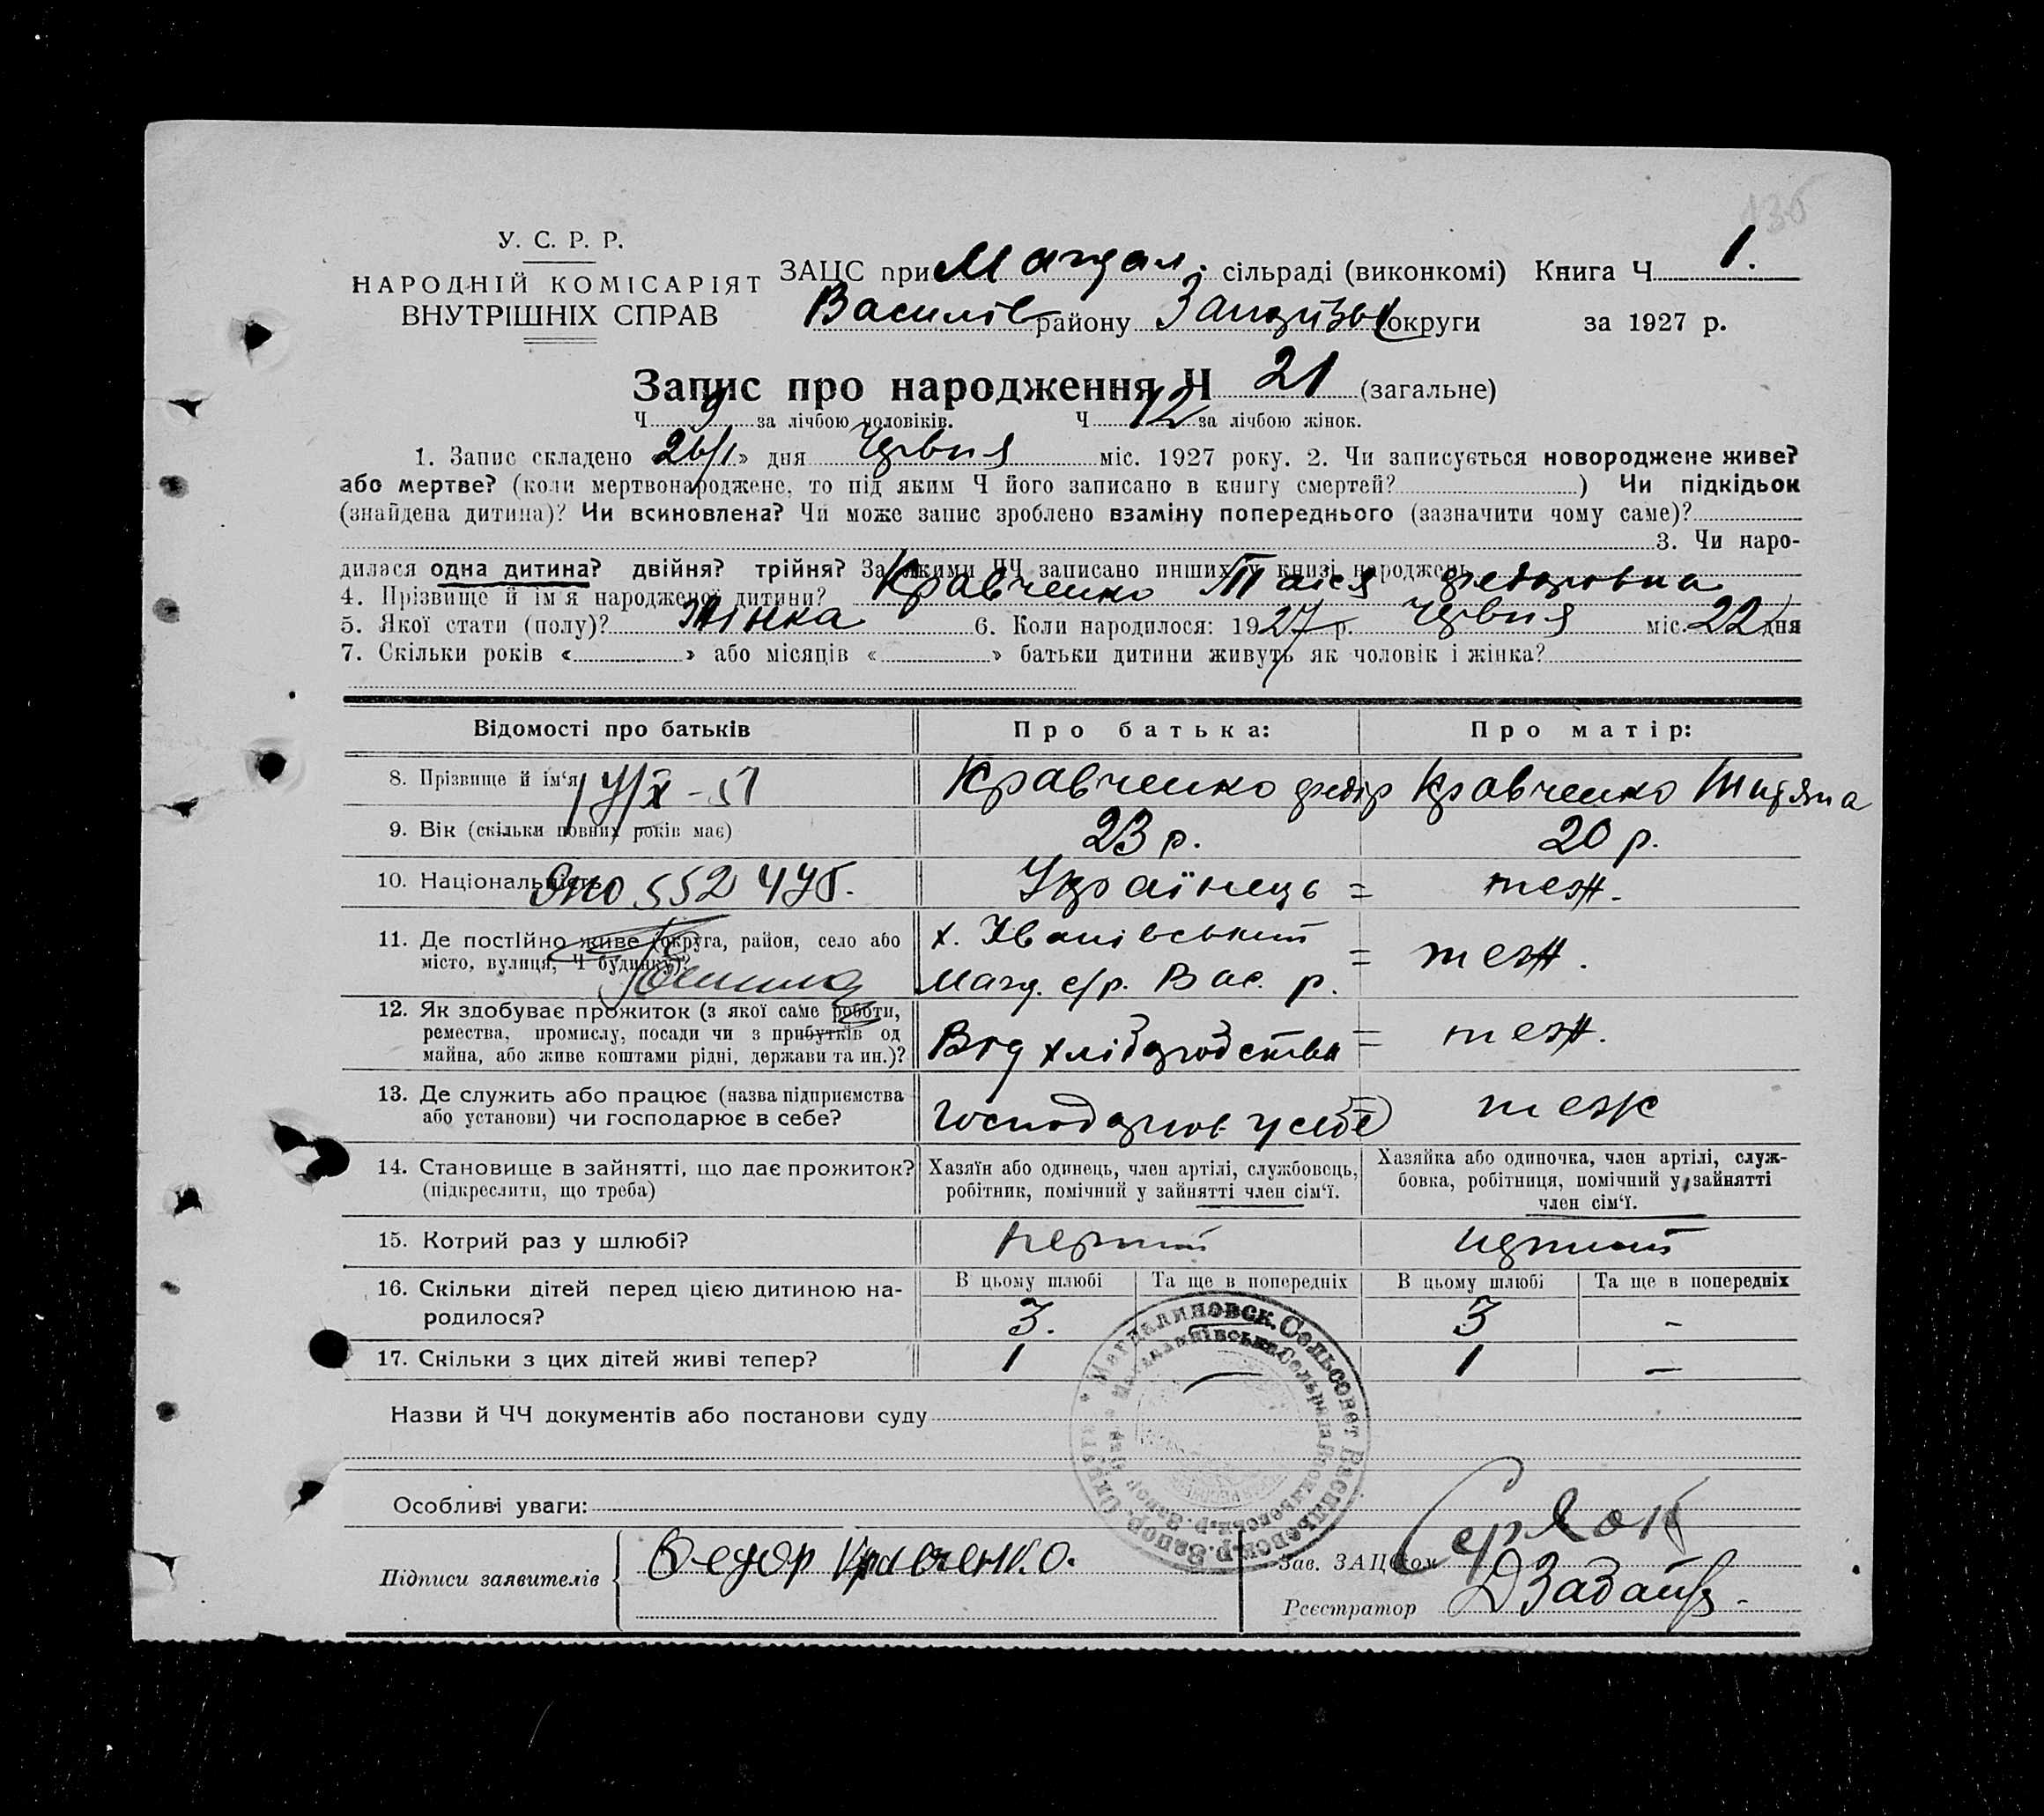 136
У. С. Р. Р.
НАРОДНІЙ КОМІСАРІЯТ
ВНУТРІШНІХ СПРАВ
ЗАЦС при Магдал. сільраді (виконкомі) Книга Ч 1.
Василів району Запорізьк округи за 1927 р.
Запис про народження Ч 21 (загальне)
Ч 9 за лічбою чоловіків. Ч 12 за лічбою жінок.
1. Запис складено 26/1» дня Червня міс. 1927 року. 2. Чи записується новороджене живе?
або мертве? (коли мертвонароджене, то під яким Ч його записано в книгу смертей? ) Чи підкідьок
(знайдена дитина)? Чи всиновлена? Чи може запис зроблено взаміну попереднього (зазначити чому саме)?
3. Чи наро-
дилася одна дитина? двійня? трійня? За якими ЧЧ записано инших у книзі народжень
4. Прізвище й ім'я народженої дитини? Кравченко Таїся Федоровна
5. Якої стати (полу)? Жінка 6. Коли народилося: 1927 р. Червня міс. 22 дня
7. Скільки років « » або місяців « » батьки дитини живуть як чоловік і жінка?
Відомості про батьків Про батька: Про матір:
8. Прізвище й ім'я Кравченко Федір Кравченко Титяна
9. Вік (скільки повних років має) 23 р. 20 р.
10. Національність 552 Українець = теж.
11. Де постійно живе (округа, район, село або
місто, вулиця, Ч будинку)?
х. Іванівський
Магд. с/р. Вас. р. = теж.
12. Як здобуває прожиток (з якої саме роботи,
ремества, промислу, посади чи з прибутків од
майна, або живе коштами рідні, держави та ин.)?
Від хліборобства = теж.
13. Де служить або працює (назва підприємства
або установи) чи господарює в себе?
Господарює у себе теж
14. Становище в зайнятті, що дає прожиток?
(підкреслити, що треба)
Хазяїн або одинець, член артілі, службовець,
робітник, помічний у зайнятті член сім'ї.
Хазяйка або одиночка, член артілі, служ-
бовка, робітниця, помічний у зайнятті
член сім'ї.
15. Котрий раз у шлюбі? перший перший
16. Скільки дітей перед цією дитиною на-
родилося?
В цьому шлюбі Та ще в попередніх В цьому шлюбі Та ще в попередніх
3. 3 -
17. Скільки з цих дітей живі тепер? 1 1 —
Назви й ЧЧ документів або постанови суду
Магдалиновск. Сельсовет Васильевск. р. Запор. Округа
Особливі уваги:
Підписи заявителів Федор Кравченко.
Зав. ЗАЦСом
Реєстратор